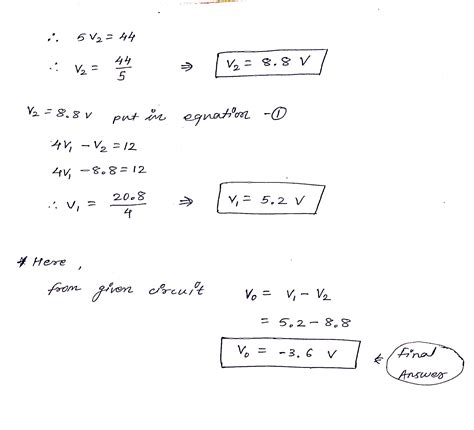 ∴ 5V₂ = 44
∴ V₂ = 44/5 ⇒ V₂ = 8.8 V
V₂ = 8.8 V put in equation -①
4V₁ - V₂ = 12
4V₁ - 8.8 = 12
∴ V₁ = 20.8/4 ⇒ V₁ = 5.2 V
* Here,
from given circuit V₀ = V₁ - V₂
= 5.2 - 8.8
V₀ = -3.6 V ⇐ Final Answer